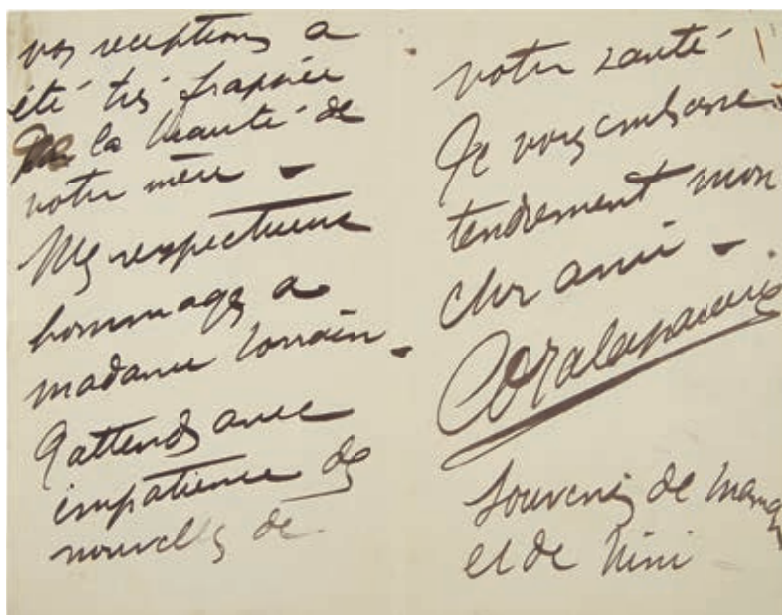 vos receptions a
été trés frappée
par la beauté de
votre mère -
Mes respectueux
hommages a
madame Lorrain -
J'attends avec
impatience des
nouvelles de
votre santé
Je vous embrasse
tendrement mon
cher ami -
Cora laparcerie
Souvenirs de maman
et de Nini